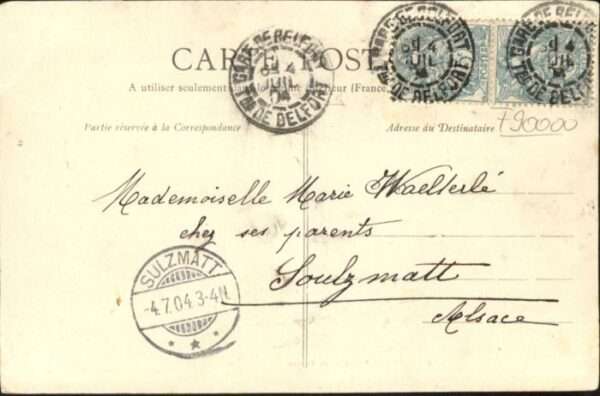 CARTE POSTALE
GARE DE BELFORT
4
JUIL
04
Tre DE BELFORT
GARE DE BELFORT
4
JUIL
DE BELFORT
GARE DE BELFORT
4
JUIL
DE BELFORT
A utiliser seulement dans le
(France,
Partie réservée à la Correspondance
Adresse du Destinataire
+90000
Mademoiselle Marie Waelterlé
chez ses parents
Soulzmatt
Alsace
SULZMATT
4.7.04.3-4N